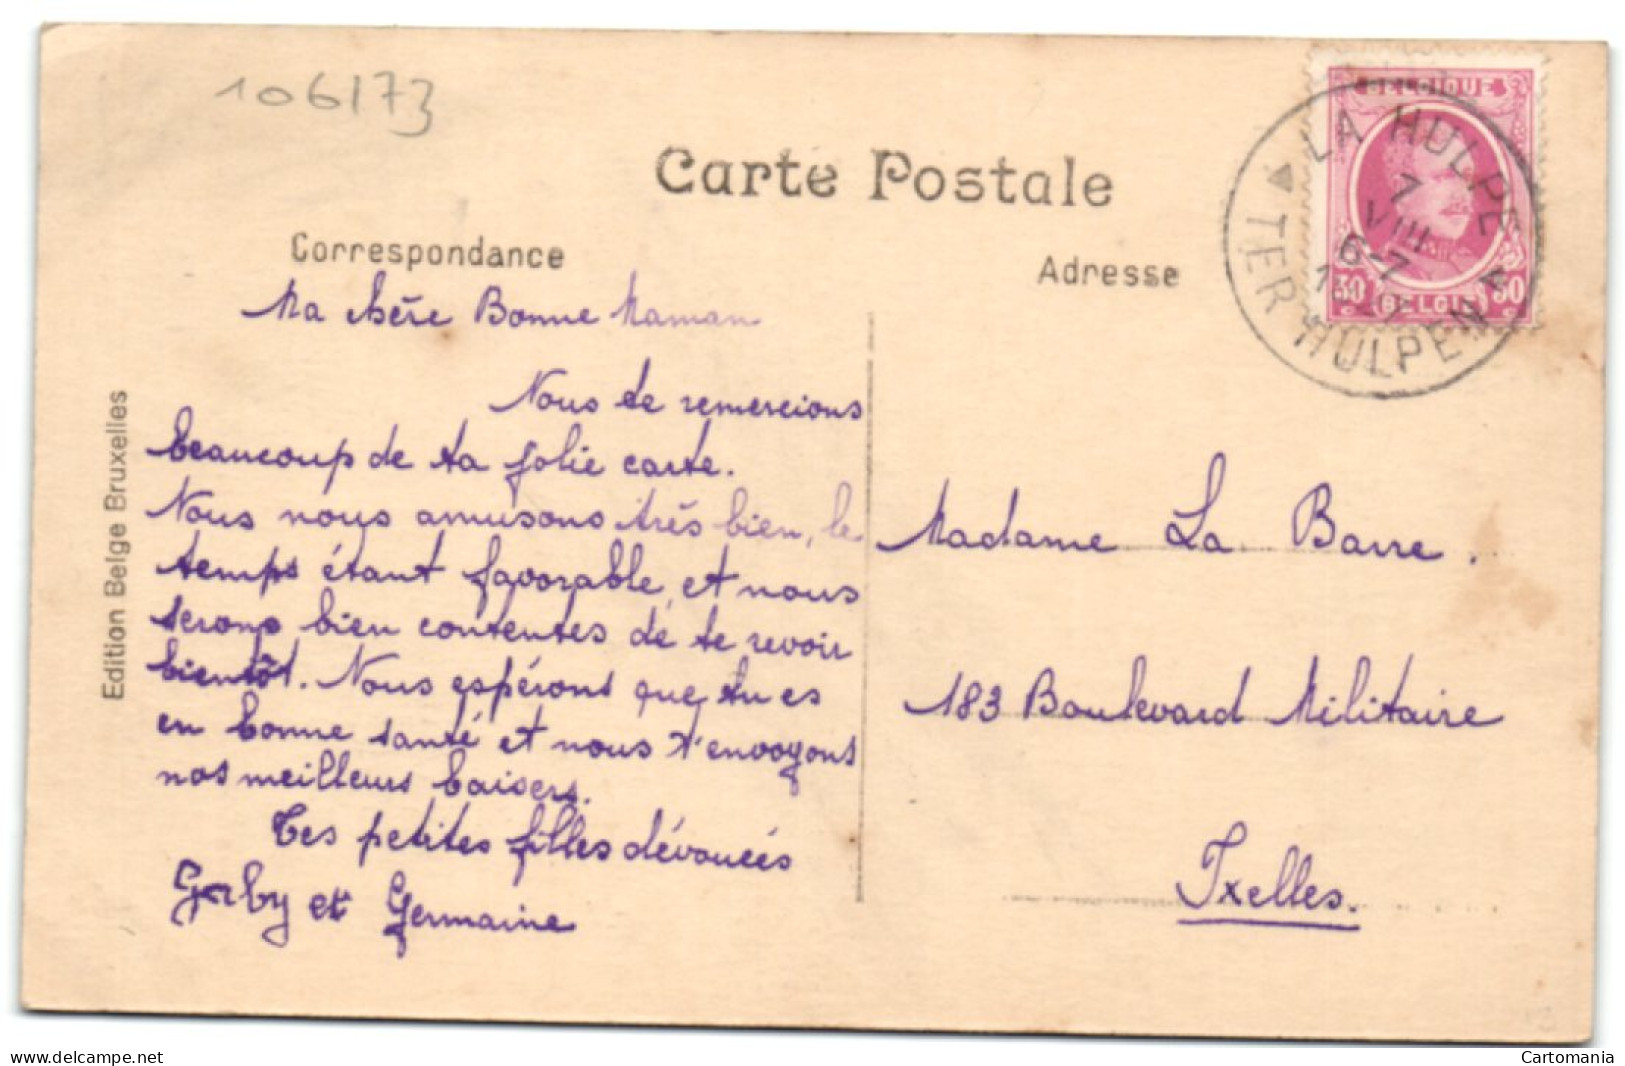 106173
Carte Postale
Correspondance
Adresse
Ma chère Bonne Maman
Nous te remercions
beaucoup de ta jolie carte.
Nous nous amusons très bien, le
temps étant favorable, et nous
serons bien contentes de te revoir
bientôt. Nous espérons que tu es
en bonne santé et nous t'envoyons
nos meilleurs baisers.
Tes petites filles dévouées
Gaby et Germaine
Edition Belge Bruxelles
Madame La Barre.
183 Boulevard Militaire
Ixelles.
BELGIQUE
30 BELGIE 30
LA HULPE
7
VIII
6-7
TER HULPEN
www.delcampe.net
Cartomania